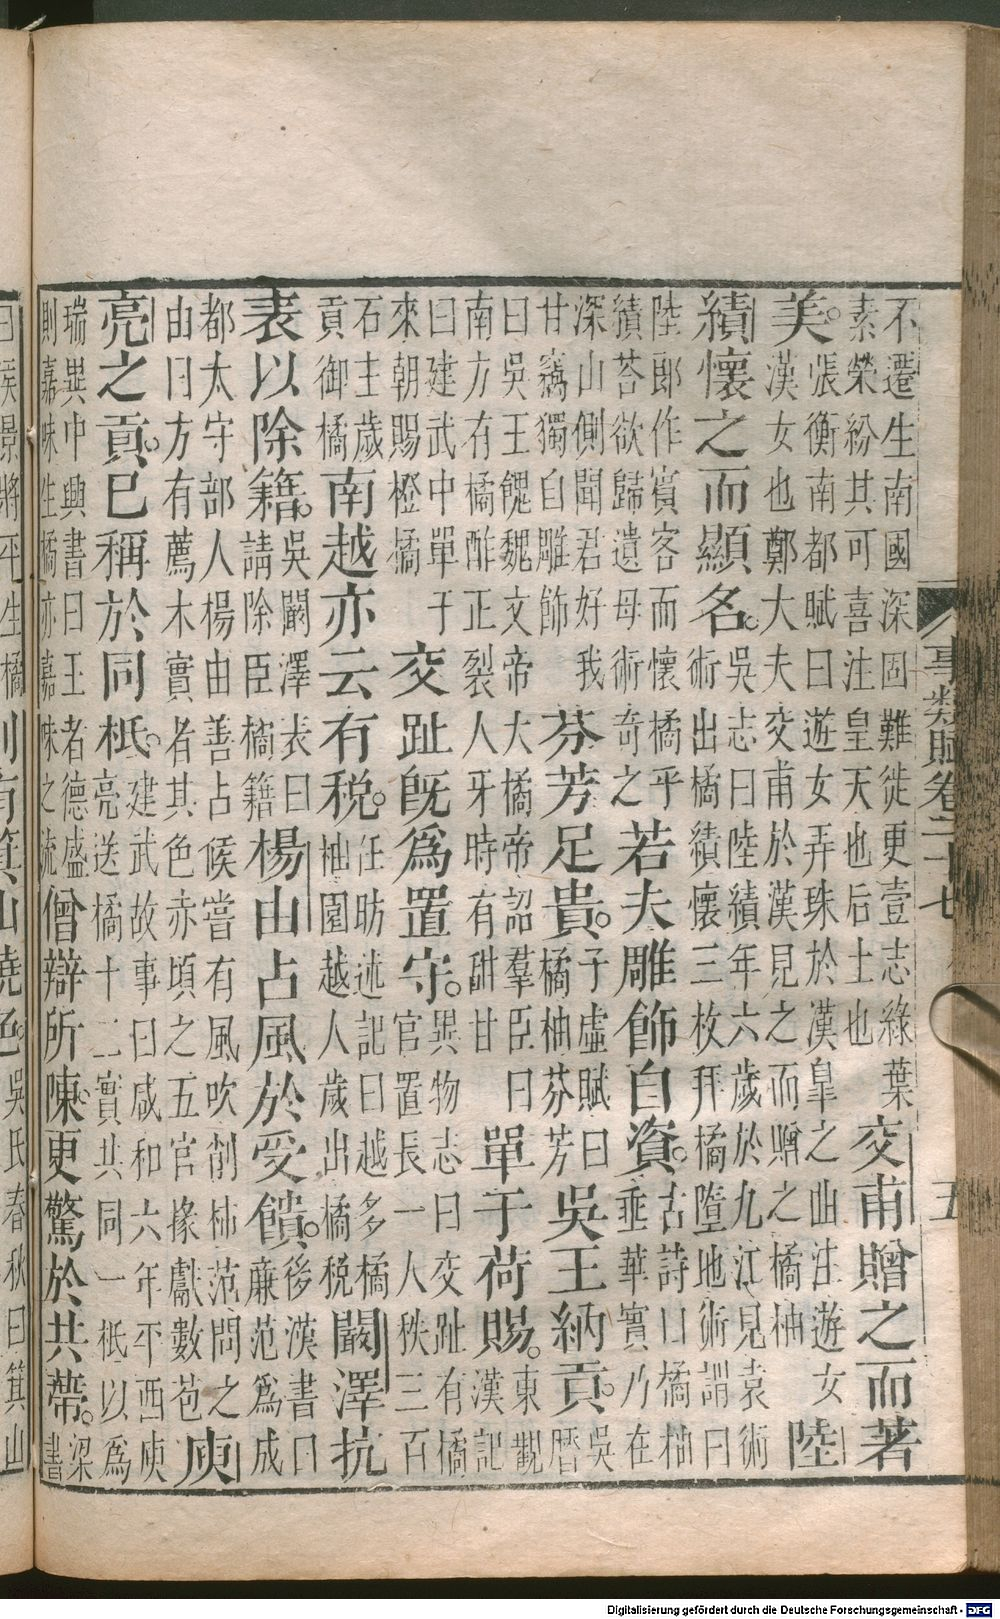 不遷生南國深固難徙更壹志綠葉
素榮紛其可喜注皇天也后土也
交甫贈之而著
美。
張衡南都賦曰遊女弄珠於漢皐之曲注遊女
漢女也鄭大夫交甫於漢見之而贈之橘柚
陸
績懷之而顯名。
吳志曰陸績年六歲於九江見袁術
術出橘績懷三枚拜橘墮地術謂曰
陸郎作賓客而懷橘乎
績荅欲歸遺母術奇之
若夫雕飾自資。
古詩曰橘柚
垂華實乃在
深山側聞君好我
甘竊獨自雕飾
芬芳足貴。
子虛賦曰
橘柚芬芳
吳王納貢。
吳
曆
曰吳王餽魏文帝大橘帝詔羣臣曰
南方有橘酢正裂人牙時有甜甘
單于荷賜。
東觀
漢記
曰建武中單于
來朝賜橙橘
交趾旣爲置守。
異物志曰交趾有橘
官置長一人秩三百
石主歲
貢御橘
南越亦云有稅。
任昉述記曰越多橘
柚園越人歲出橘稅
闞澤抗
表以除籍。
吳闞澤表曰
請除臣橘籍
楊由占風於受饋。
後漢書曰
廉范爲成
都太守部人楊由善占候嘗有風吹削柿范問之
由曰方有薦木實者其色赤頃之五官掾獻數苞
庾
亮之貢。已稱於同柢。
建武故事曰咸和六年平西庾
亮送橘十二實共同一柢以爲
瑞異中興書曰王者德盛
則嘉味生橘亦嘉味之流
僧辯所陳。更驚於共蔕。
梁
書
事類賦卷二十七
五
Digitalisierung gefördert durch die Deutsche Forschungsgemeinschaft - DFG